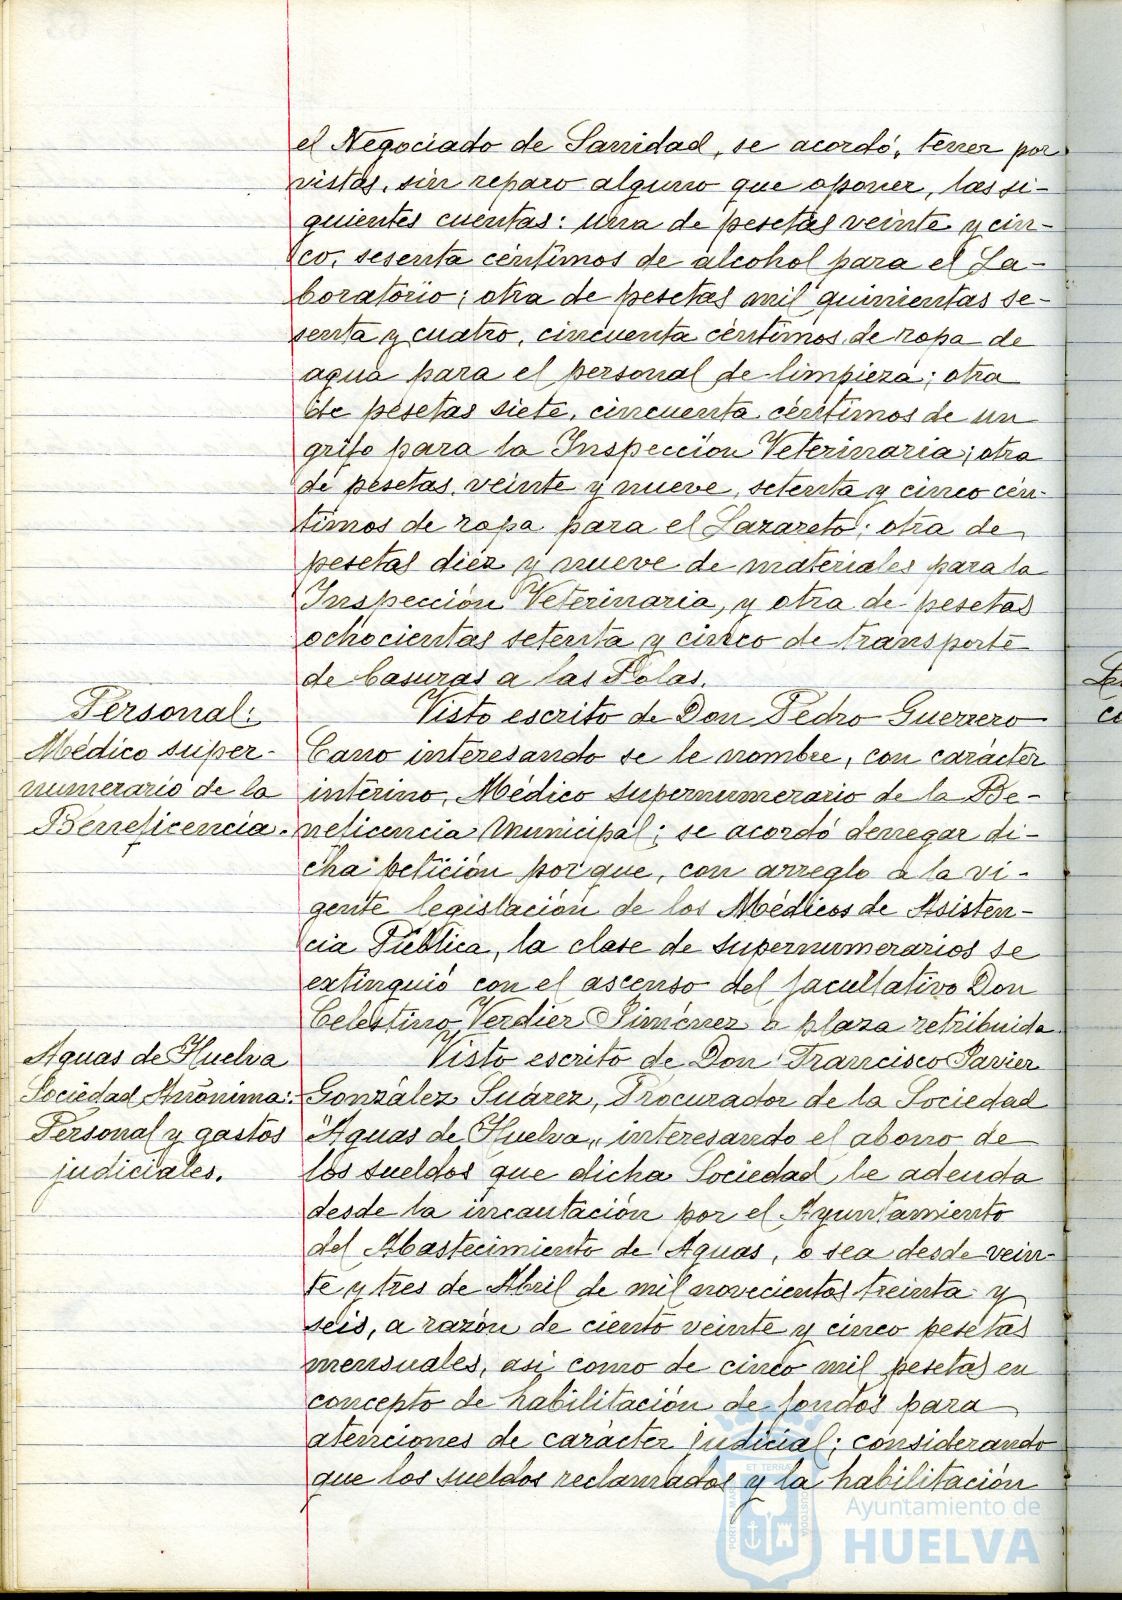 el Negociado de Sanidad, se acordó, tener por
vistas, sin reparo alguno que oponer, las si-
guientes cuentas: una de pesetas veinte y cin-
co, sesenta céntimos de alcohol para el La-
boratorio; otra de pesetas mil quinientas se-
senta y cuatro, cincuenta céntimos, de ropa de
agua para el personal de limpieza; otra
de pesetas siete, cincuenta céntimos de un
grifo para la Inspección Veterinaria; otra
de pesetas, veinte y nueve, setenta y cinco cén-
timos de ropa para el Lazareto; otra de
pesetas diez y nueve de materiales para la
Inspección Veterinaria, y otra de pesetas
ochocientas setenta y cinco de transporte
de basuras a las Polas.
Personal:
Médico super-
numerario de la
Beneficencia.
Visto escrito de Don Pedro Guerrero
Cano interesando se le nombre, con carácter
interino, Médico supernumerario de la Be-
neficencia Municipal; se acordó denegar di-
cha petición porque, con arreglo a la vi-
gente legislación de los Médicos de Asisten-
cia Pública, la clase de supernumerarios se
extinguió con el ascenso del facultativo Don
Celestino Verdier Jiménez a plaza retribuida.
Aguas de Huelva
Sociedad Anónima:
Personal y gastos
judiciales.
Visto escrito de Don Francisco Javier
González Suárez, Procurador de la Sociedad
"Aguas de Huelva", interesando el abono de
los sueldos que dicha Sociedad le adeuda
desde la incautación por el Ayuntamiento
del Abastecimiento de Aguas, o sea desde vein-
te y tres de Abril de mil novecientos treinta y
seis, a razón de ciento veinte y cinco pesetas
mensuales, asi como de cinco mil pesetas en
concepto de habilitación de fondos para
atenciones de carácter judicial; considerando
que los sueldos reclamados y la habilitación
Ayuntamiento de
HUELVA